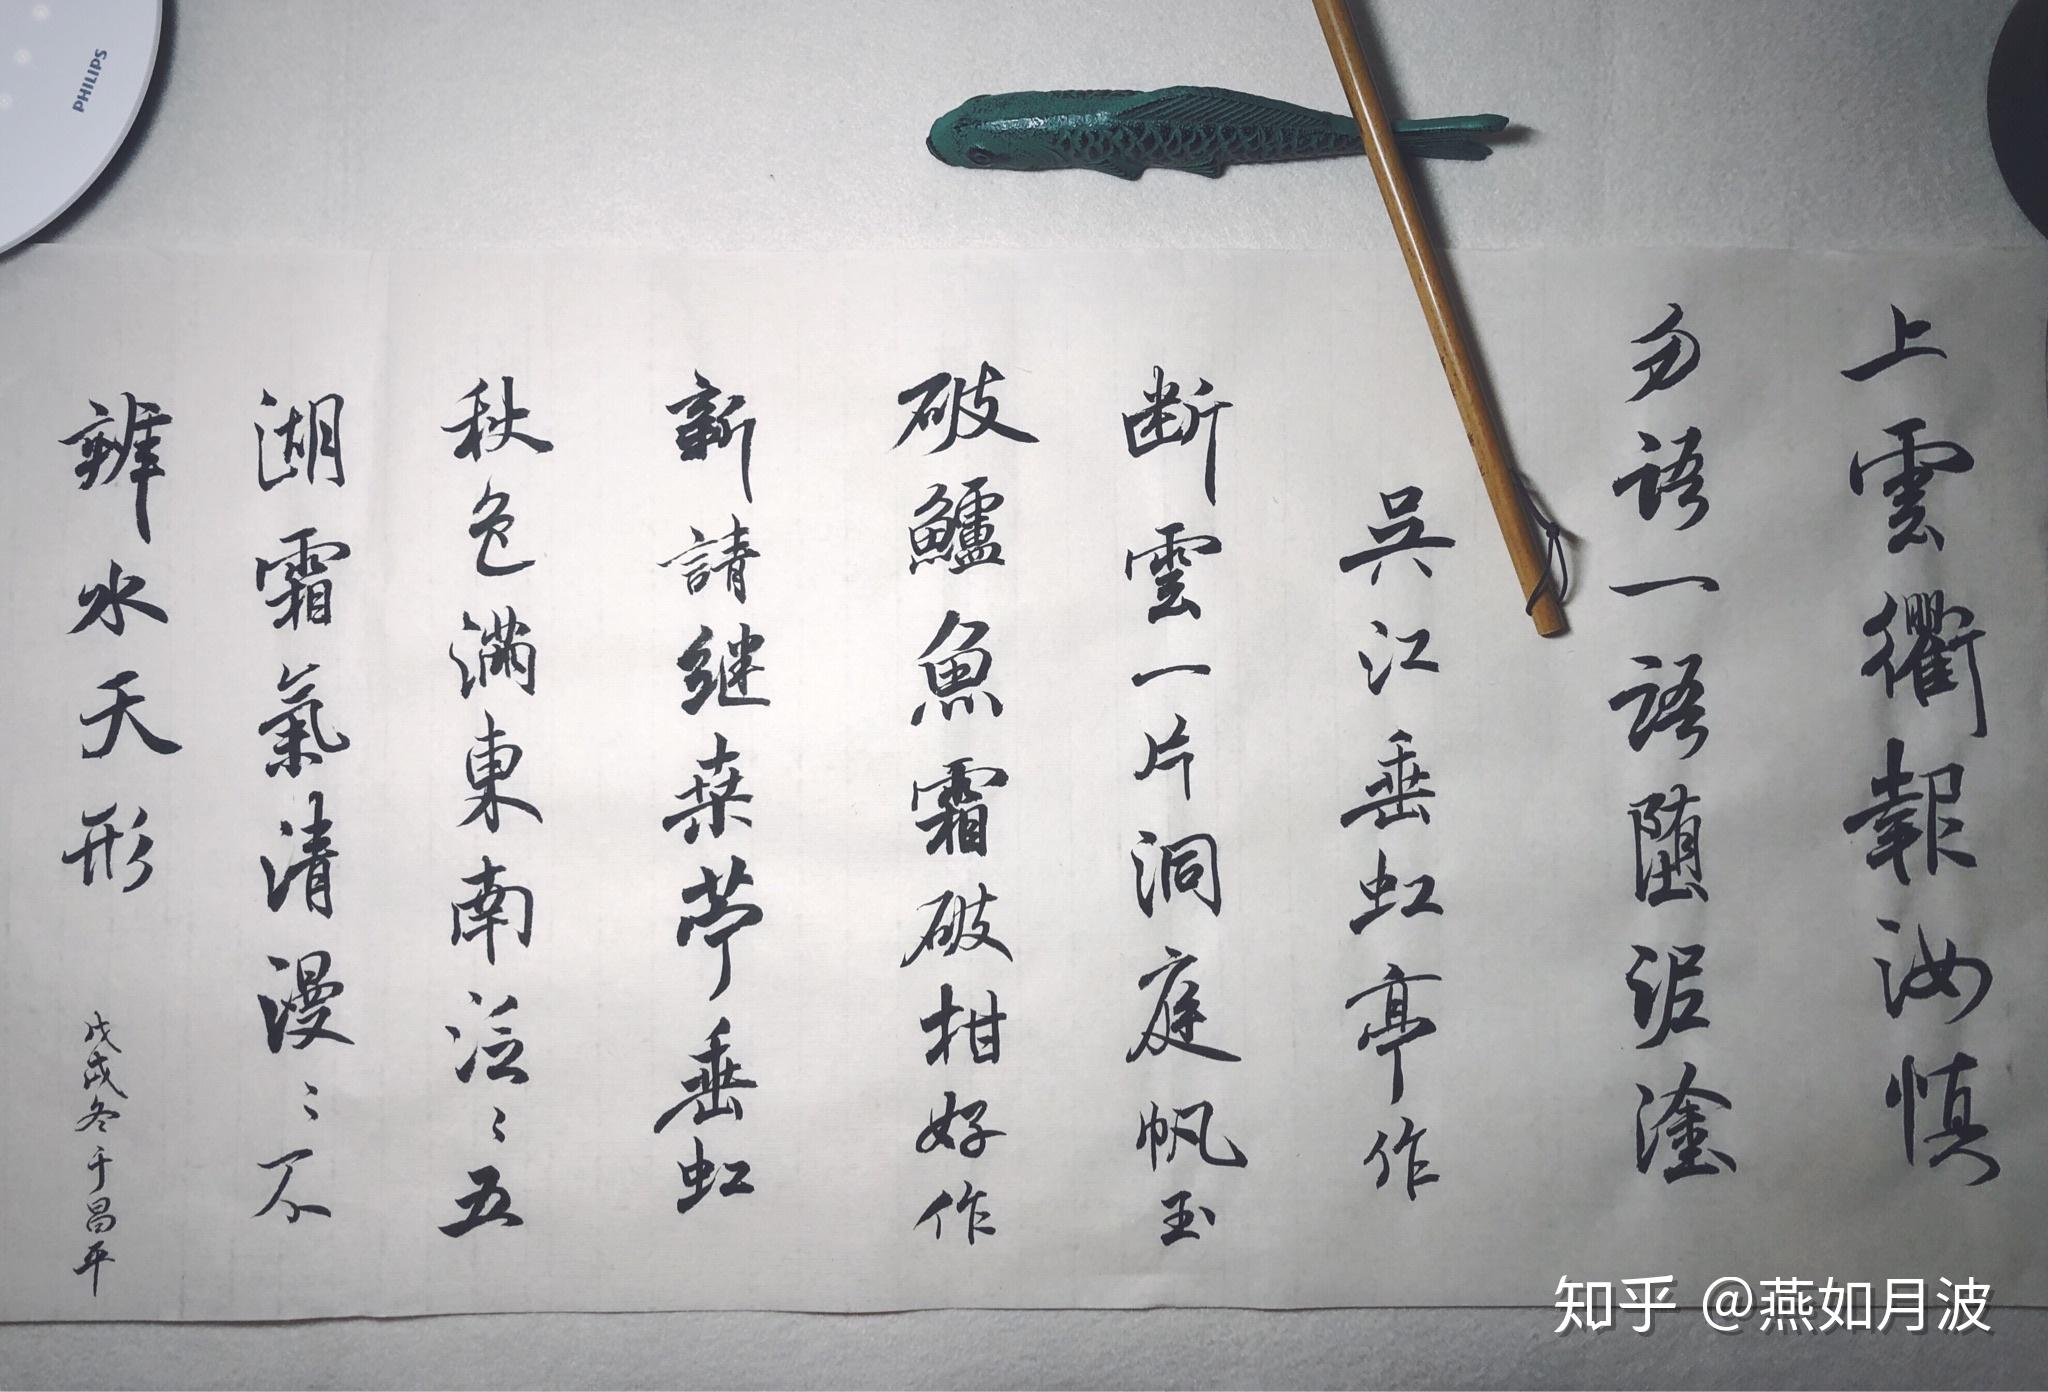 上雲衢報汝慎
勿語一語堕泥塗
吳江垂虹亭作
断雲一片洞庭帆玉
破鱸魚霜破柑好作
新請継桒苧垂虹
秋色満東南泛〻五
湖霜氣清漫〻不
辨水天形
戊戌冬于昌平
PHILIPS
知乎 @燕如月波